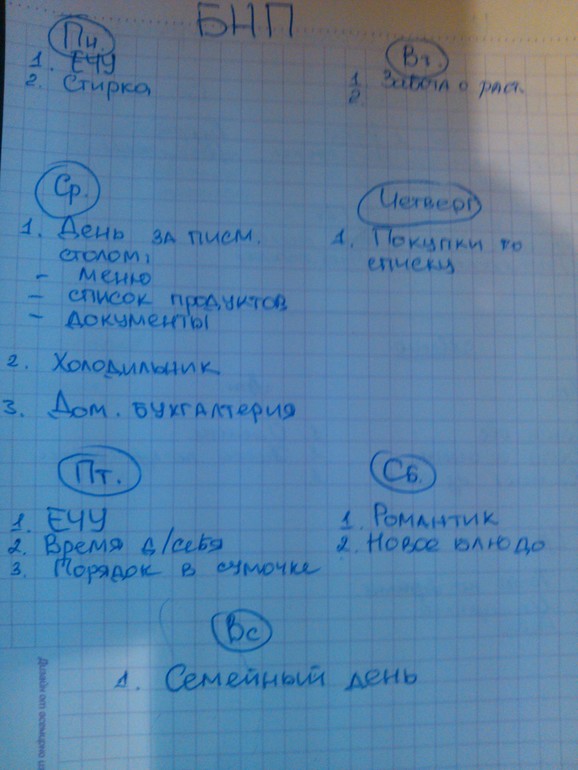 БНП
Пн.
1. ЕЧУ
2. Стирка
Вт.
1. Забота о раст.
2.
Ср.
1. День за писм.
столом:
- меню
- список продуктов
- документы
2. Холодильник
3. Дом. бухгалтерия
Четверг
1. Покупки по
списку
Пт.
1. ЕЧУ
2. Время д/себя
3. Порядок в сумочке
Сб.
1. Романтик
2. Новое блюдо
Вс
1. Семейный день